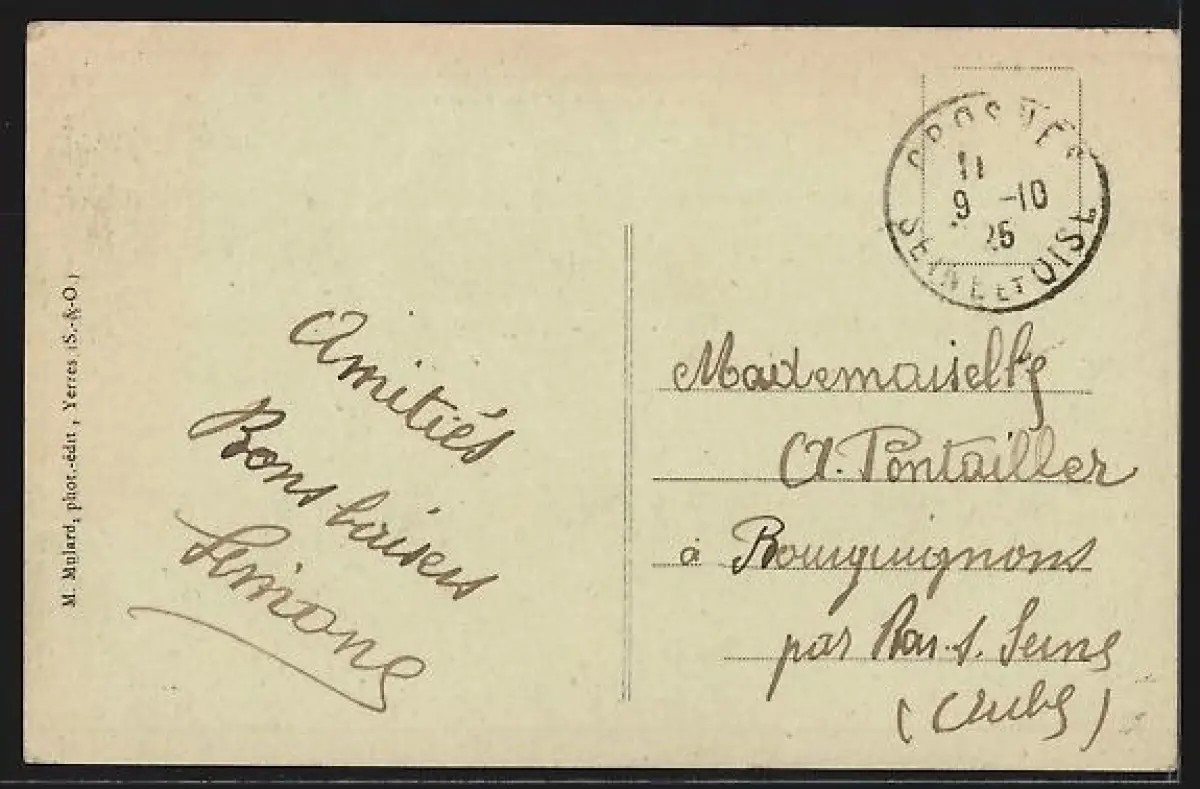 M. Mulard, phot.-édit, Yerres (S.-&-O.)
Amitiés
Bons baisers
Simone
CROSNES
11
9 -10
25
SEINE ET OISE
Mademoiselle
A. Pontailler
à Bourguignons
par Bar. s. Seine
(Aube)